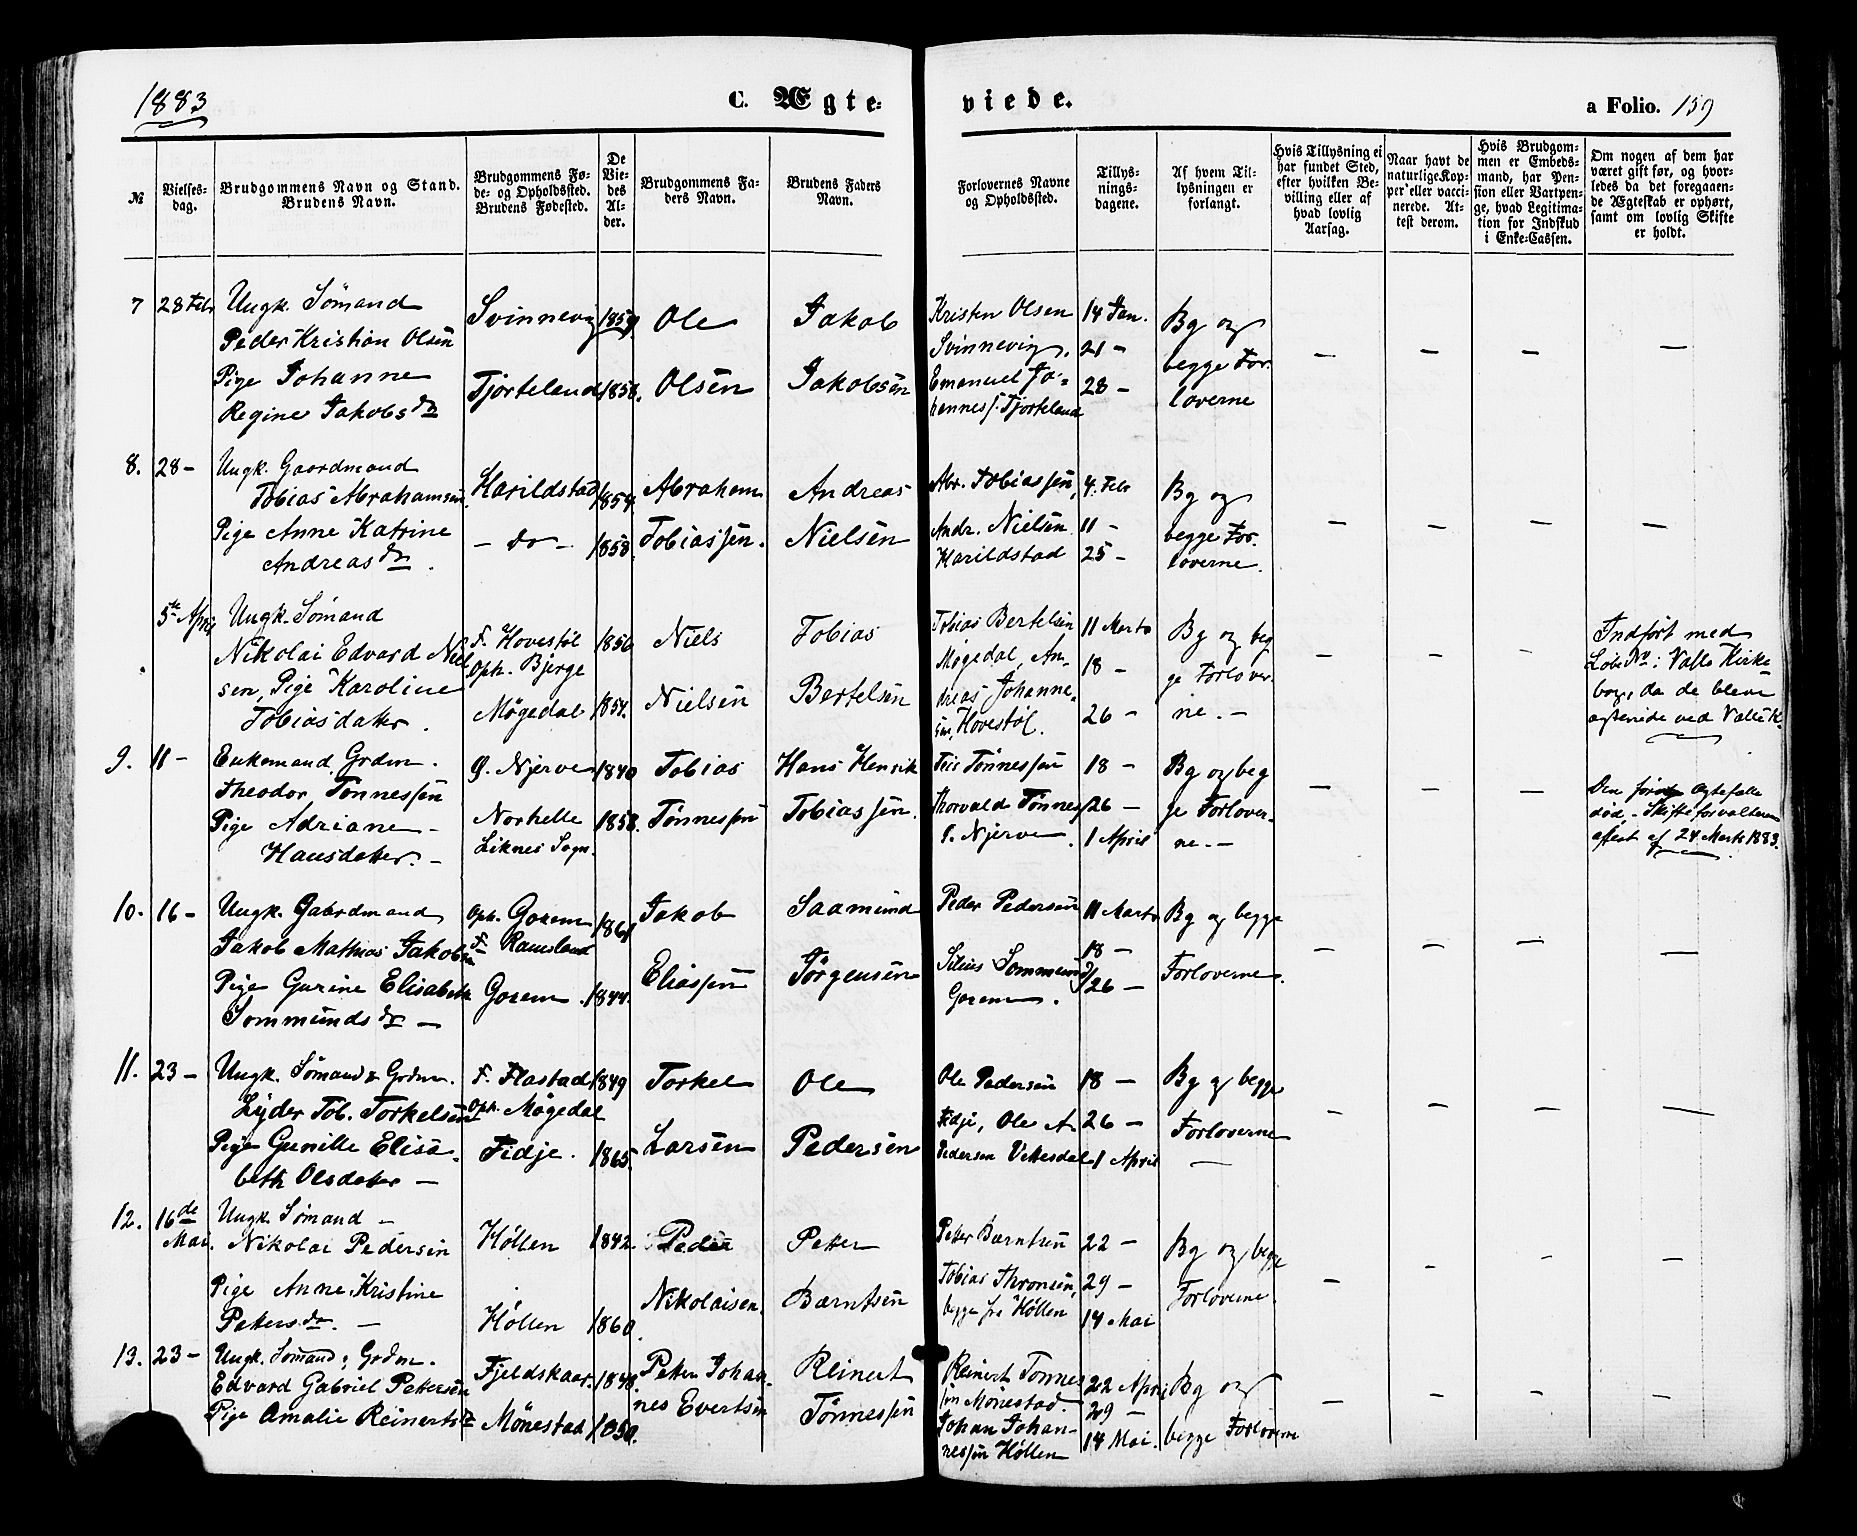 1883
C. Ægteviede.
a Folio. 159
№
Vielsesdag.
Brudgommens Navn og Stand.
Brudens Navn.
Brudgommens Føde- og Opholdssted.
Brudens Fødested.
De Viedes Alder.
Brudgommens Faders Navn.
Brudens Faders Navn.
Forlovernes Navne og Opholdssted.
Tillysningsdagene.
Af hvem Tillysningen er forlangt.
Hvis Tillysning ei har fundet Sted, efter hvilken Bevilling eller af hvad lovlig Aarsag.
Naar havt de naturlige Kopper eller vaccinerede. Attest derom.
Hvis Brudgommen er Embedsmand, har Pension eller Vartpenge, hvad Legitimation for Indskud i Enke-Cassen.
Om nogen af dem har været gift før, og hvorledes da det foregaaende Ægteskab er ophørt, samt om lovlig Skifte er holdt.
7 28 Febr Ungk. Sømand Svinnevig 1859. Ole Jakob Kristen Olsen 14 Jan. Bg og
Peder Kristian Olsen Svinnevig, 21 — — — — —
Pige Johanne Tjorteland 1858. Olsen Jakobsen Emanuel Jo- 28 — begge For-
Regine Jakobsdr hanness. Tjorteland loverne
8. 28 — Ungk. Gaardmand Abr. Tobiassen, 4. Febr Bg og
Tobias Abrahamsen Harildstad 1854. Abraham Andreas
Pige Anne Katrine Andr. Nielsen 11 — begge For- — — — —
Andreasdr. — do — 1858. Tobiassen. Nielsen Harildstad 25 — loverne.
5te April Ungk. Sømand F. Hovestøl 1856 Niels Tobias Tobias Bertelsen 11 Marts Bg og beg Indført med
Nikolai Edvard Niel Oph. Bjerge Møgedal, An- 18 — ge Forlover- — — — Løbe No i Valle Kirke-
sen, Pige Karoline Møgedal 1854. Nielsen Bertelsen dreas Johanne- bog, da de bleve
Tobiasdatter. sen, Hovestøl. 26 — ne. — ægteviede ved Valle K.
9. 11 — Enkemand, Grdm. Ø. Njerve 1840 Tobias Hans Henrik Tønnessen 18 — Bg og beg
Theodor Tønnessen Thorvald Tønnes 26 — ge Forlover- — — — Den ægtefelle
Pige Adriane — Norhelle 1858. Tønnessen Tobiassen. Njerve. 1 April ne. — død. Skifteforvalteren
Hansdatter. — Liknes Sogn. attest af 24 Marts 1883.
10. 16 — Ungk. Gaardmand Oph. Gorem 1861 Jakob Saamund Peder Pedersen 11 Marts Bg og begge
Jakob Mathias Jakobsen F. Ramsland 18 — — — — —
Pige Gurine Elisabeth Gorem. 1844. Eliassen Jørgensen Sommund 26 — Forloverne.
Sommundsdr — Gorem.
11. 23 — Ungk. Sømand & Grdm. F. Flastad 1849 Torkel Ole Ole Pedersen 18 — Bg og begge
Lyder Tob. Torkelsen Oph. Møgedal Fidje, Ole A. 26 — Forloverne — — — —
Pige Gunille Elisa- Fidje. 1865. Larsen Pedersen Pedersen Vettesdal 1 April —
beth Olsdatter —
12. 16de Mai. Ungk. Sømand —
Nikolai Pedersen Høllen 1842. Peder Petter Petter Berntsen 22 — Bg og begge
Pige Anne Kristine Tobias Thronsen, 29 — Forloverne. — — — —
Pettersdr. — Høllen 1860. Nikolaisen. Berntsen begge fra Høllen 14 Mai
13. 23 — Ungk. Sømand & Grdm. Fjeldskaar. 1848. Petter Johan- Reinert Reinert Tønnes 22 April Bg og
Edvard Gabriel Pettersen sen Mønestad. 29 — — — — —
Pige Amalie Reinertsdr Mønestad 1850. nes Evertsen Tønnessen Johan Johan- 14 Mai. begge Forloverne
nessen Høllen